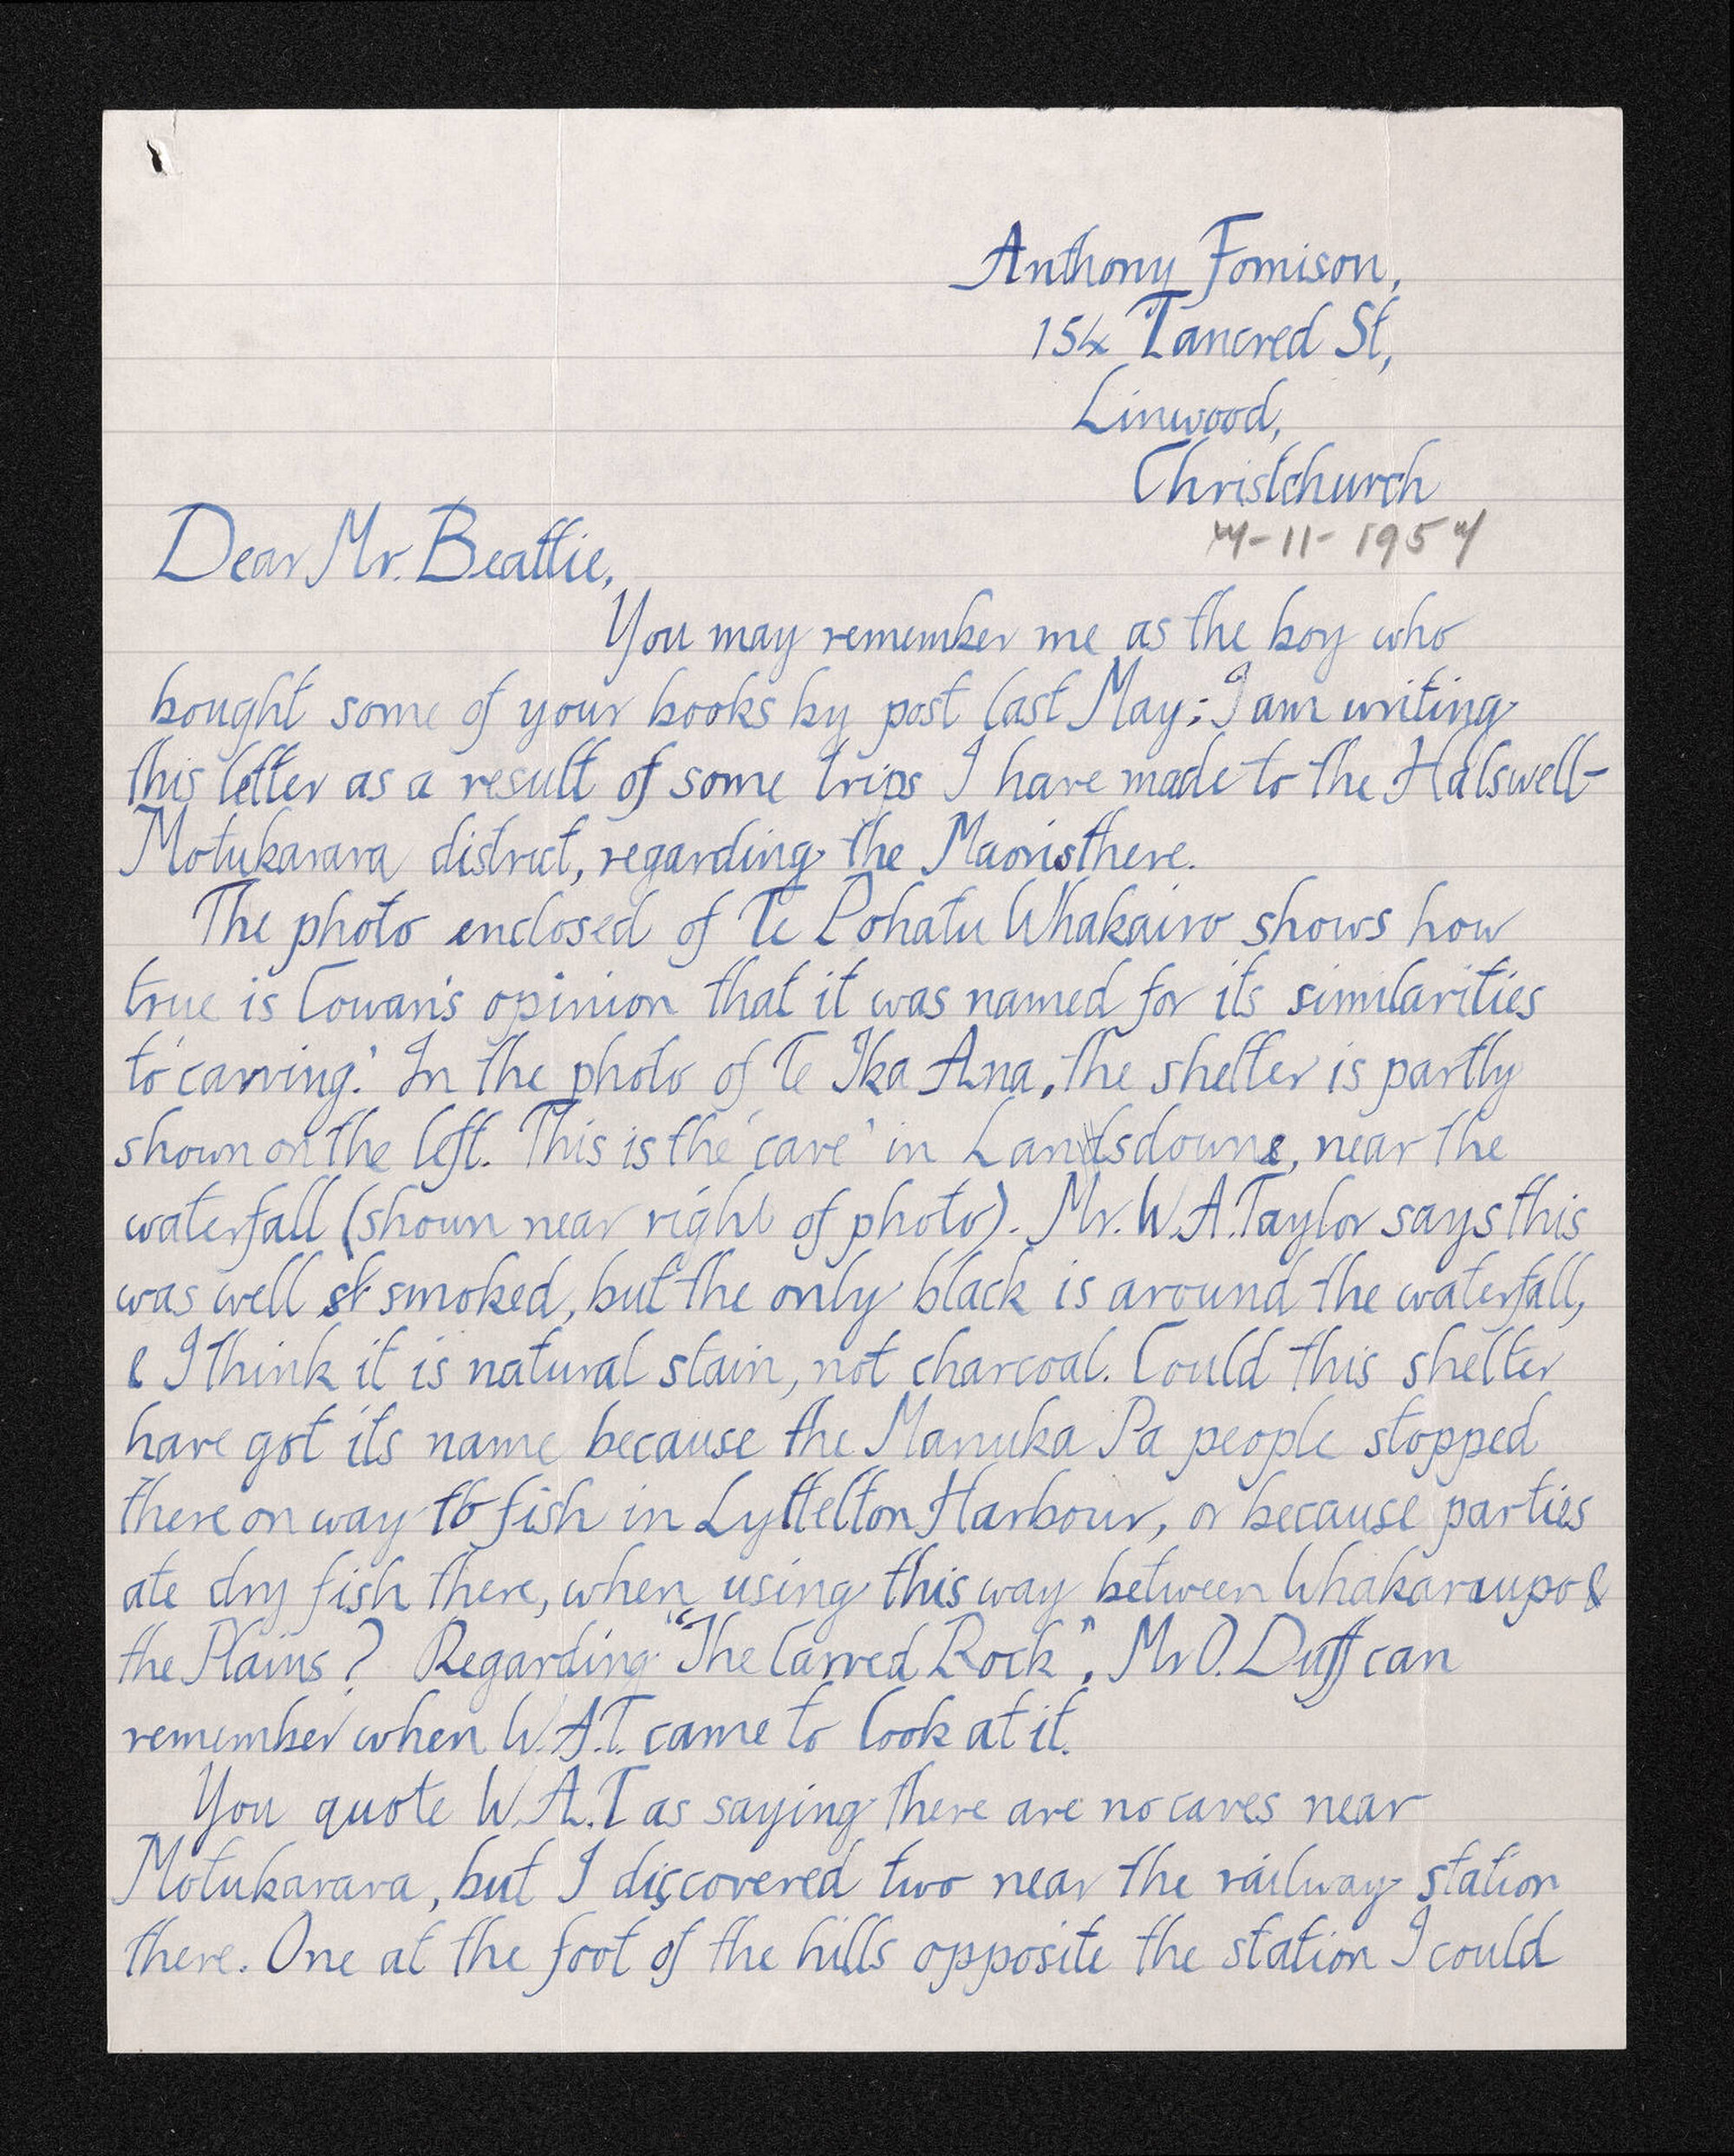 Anthony Fomison,
154 Tancred St,
Linwood,
Christchurch
11-195
Dear Mr. Beattie,
You may remember me as the boy who
bought some of your books by post last May; I am writing
this letter as a result of some trips I have made to the Halswell-
Motukarara district, regarding the Maoris there.
The photo enclosed of Te Pohatu Whakairo shows how
true is Cowan's opinion that it was named for its similarities
to 'carving.' In the photo of Te Ika Ana, the shelter is partly
shown on the left. This is the 'cave' in Lansdowne, near the
waterfall (shown near right of photo). Mr. W.A. Taylor says this
was well smoked, but the only black is around the waterfall,
& I think it is natural stain, not charcoal. Could this shelter
have got its name because the Manuka Pa people stopped
there on way to fish in Lyttelton Harbour, or because parties
ate dry fish there, when using this way between Whakaraupo &
the Plains? Regarding "The Carved Rock", Mr O. Duff can
remember when W.A.T. came to look at it.
You quote W.A.T as saying there are no caves near
Motukarara, but I discovered two near the railway station
there. One at the foot of the hills opposite the station I could